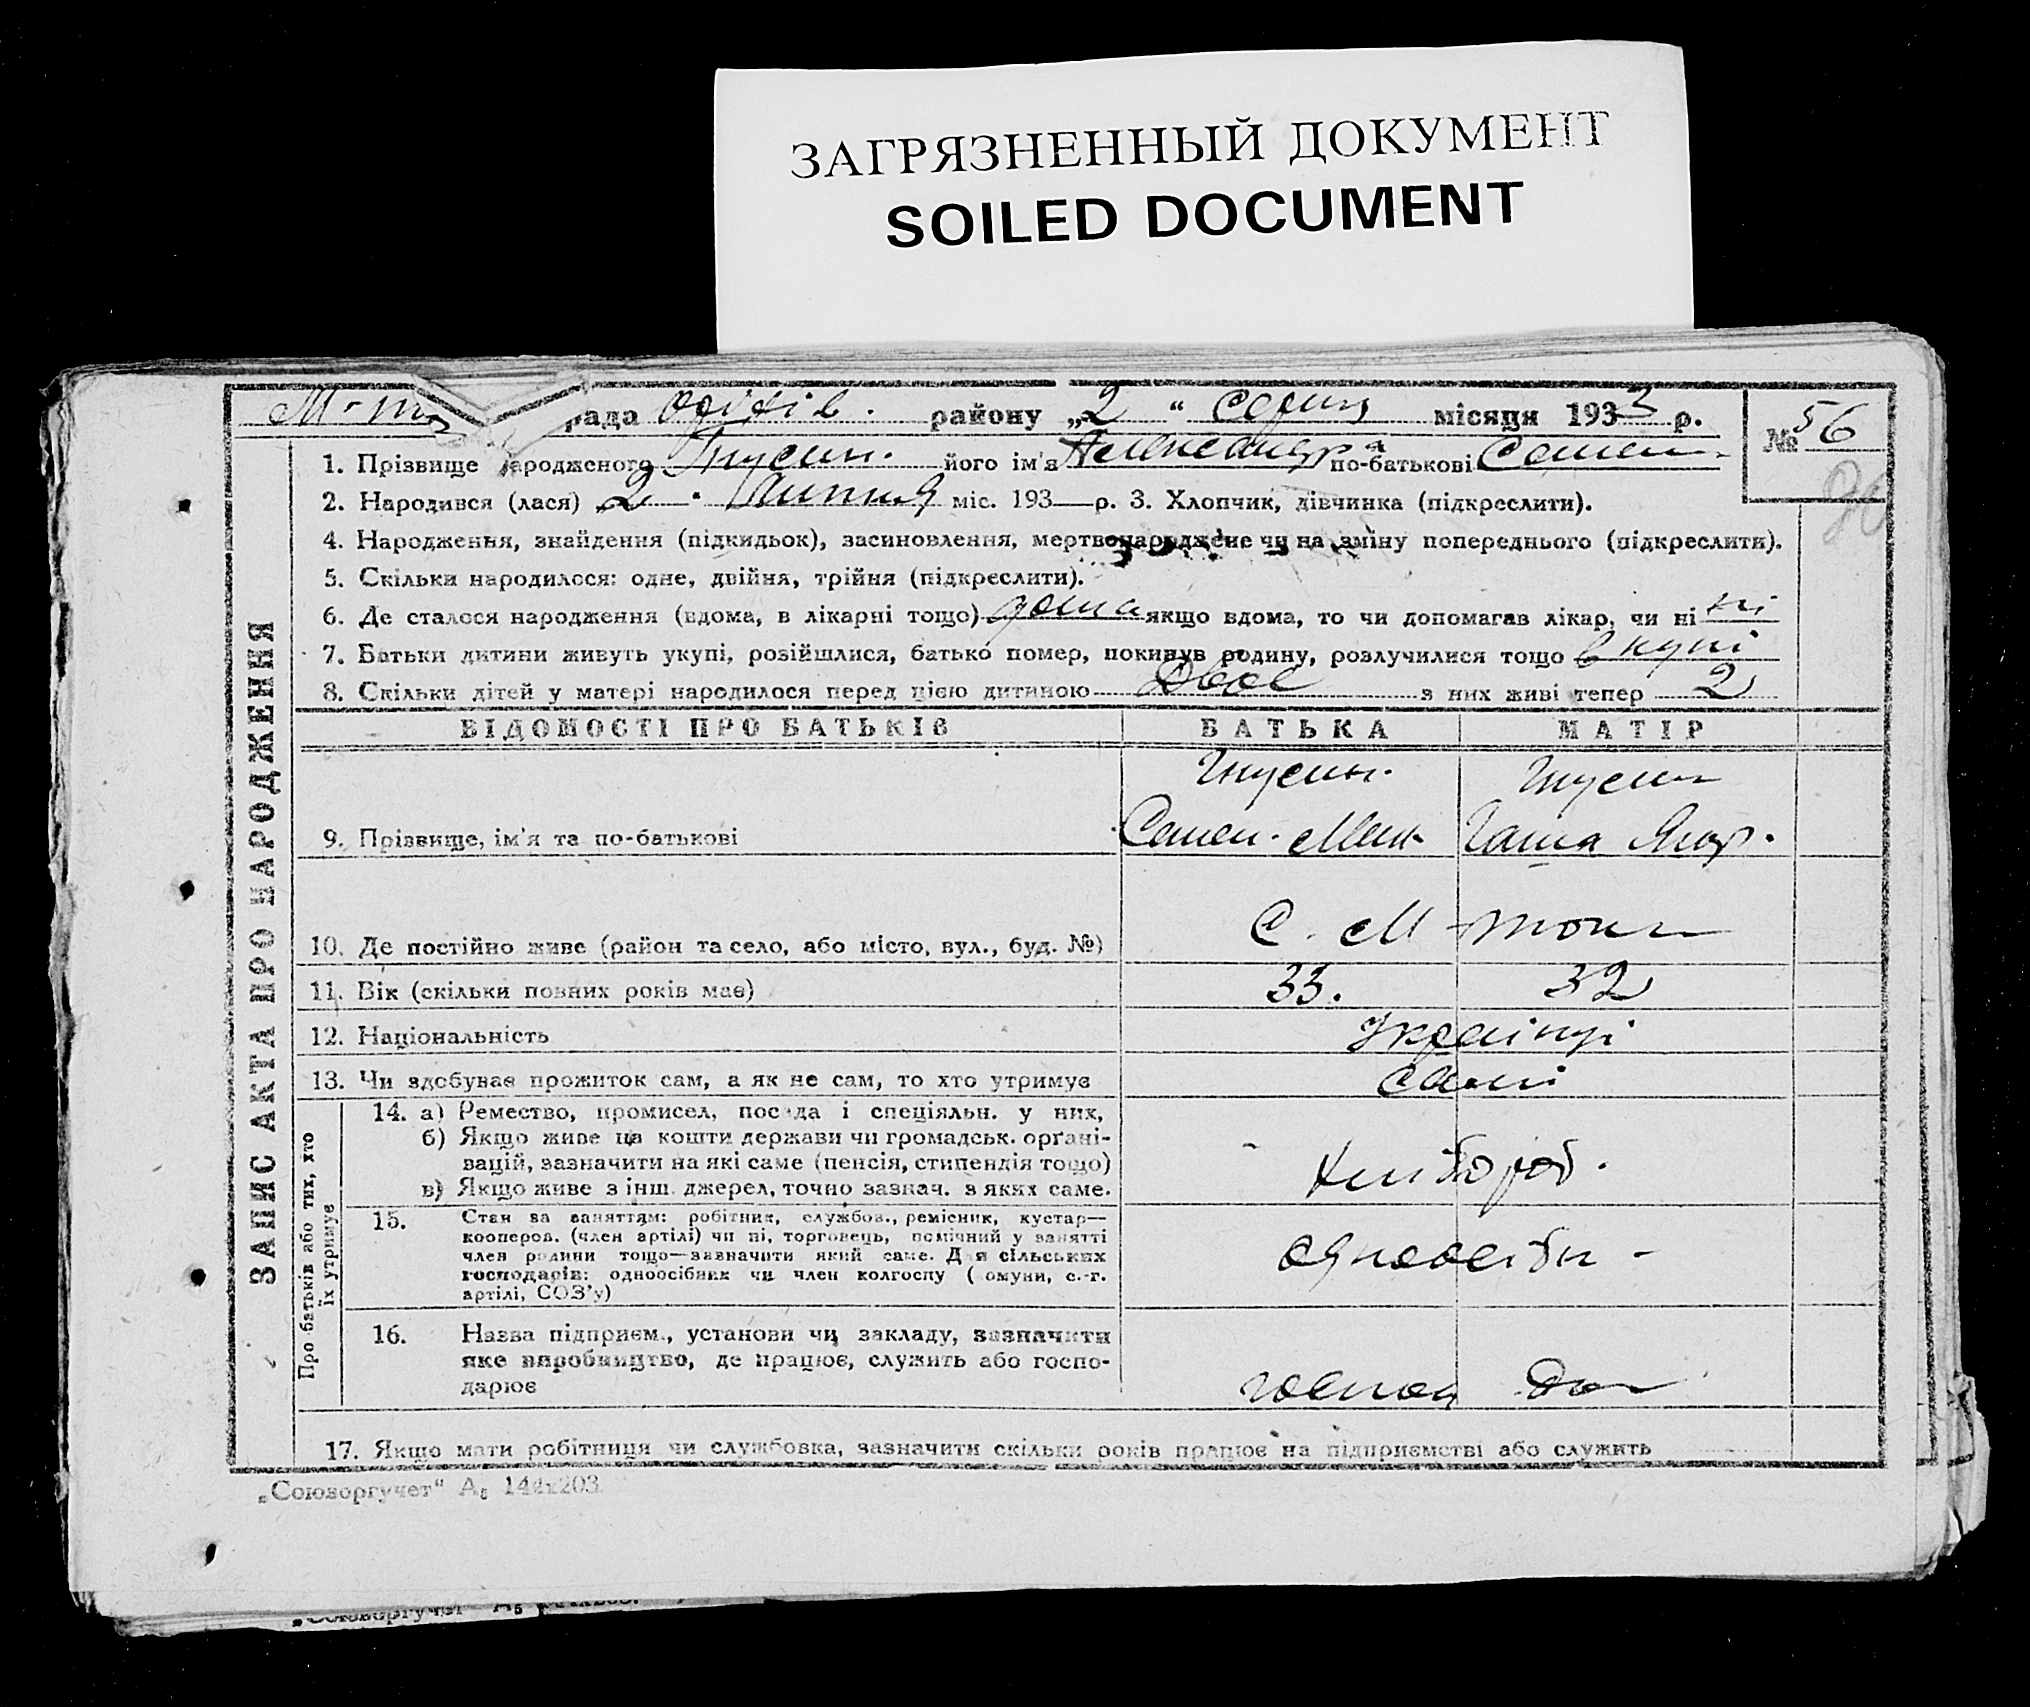 ЗАГРЯЗНЕННЫЙ ДОКУМЕНТ
SOILED DOCUMENT
М-то рада Оріхів. району „2“ серпц місяця 1933 р.
№ 56
1. Прізвище народженого його ім'я Александра по-батькові Семен.
2. Народився (лася) 2 " Липня міс. 193 р. 3. Хлопчик, дівчинка (підкреслити).
4. Народження, знайдення (підкидьок), засиновлення, мертвонароджене чи на зміну попереднього (підкреслити).
5. Скільки народилося: одне, двійня, трійня (підкреслити).
6. Де сталося народження (вдома, в лікарні тощо) дома якщо вдома, то чи допомагав лікар, чи ні ні
7. Батьки дитини живуть укупі, розійшлися, батько помер, покинув родину, розлучилися тощо вкупі
8. Скільки дітей у матері народилося перед цією дитиною Двое з них живі тепер 2
ЗАПИС АКТА ПРО НАРОДЖЕННЯ
ВІДОМОСТІ ПРО БАТЬКІВ БАТЬКА МАТІР
9. Прізвище, ім'я та по-батькові
Семен.
10. Де постійно живе (район та село, або місто, вул., буд. №) С. М-
11. Вік (скільки повних років має) 33. 32
12. Національність Українці
13. Чи здобуває прожиток сам, а як не сам, то хто утримує самі
Про батьків або тих, хто їх утримує
14. а) Ремество, промисел, посада і спеціяльн. у них,
б) Якщо живе на кошти держави чи громадськ. орґані-
зацій, зазначити на які саме (пенсія, стипендія тощо)
в) Якщо живе з інш. джерел, точно зазнач. з яких саме.
Хлібороб.
15. Стан за заняттям: робітник, службов., ремісник, кустар—
кооперов. (член артілі) чи ні, торговець, помічний у занятті
член родини тощо—зазначити який саме. Для сільських
господарів: одноосібник чи член колгоспу (комуни, с.-г.
артілі, СОЗ'у)
одноосібн -
16. Назва підприєм., установи чи закладу, зазначити
яке виробництво, де працює, служить або госпо-
дарює
господ
17. Якщо мати робітниця чи службовка, зазначити скільки років працює на підприємстві або служить
„Союзоргучет“ А₅ 144х203.